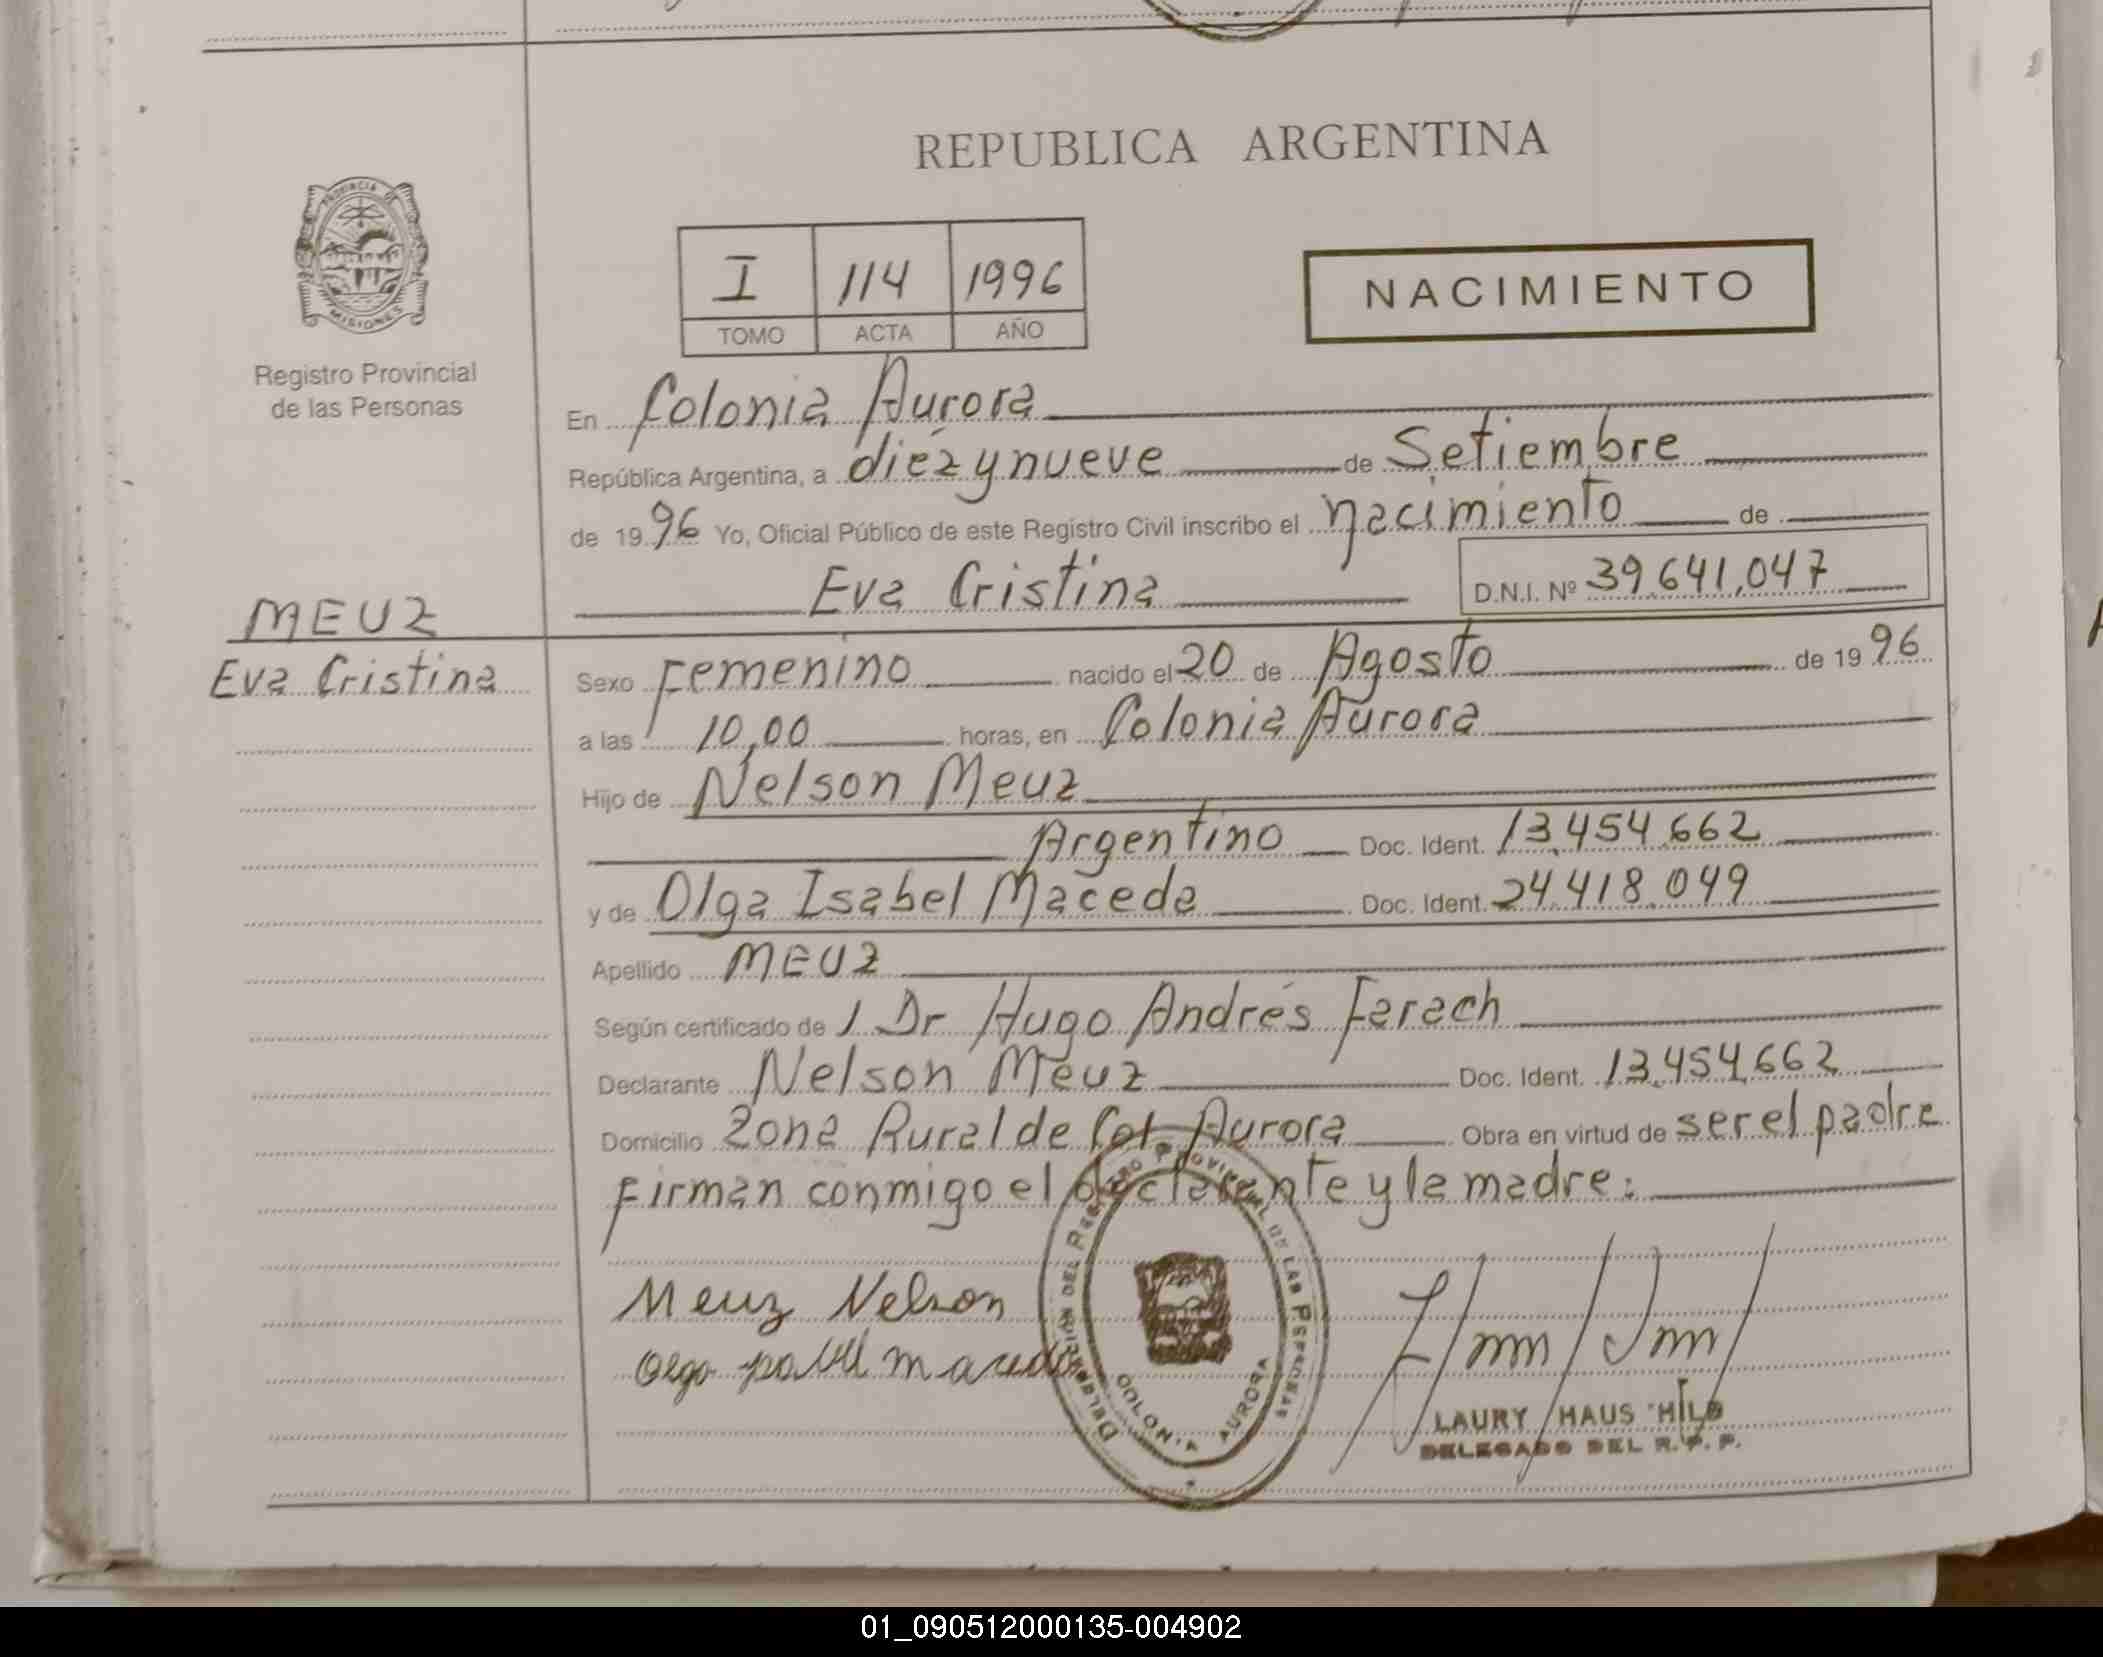 REPUBLICA ARGENTINA
PROVINCIA DE
MISIONES
Registro Provincial
de las Personas
I 114 1996
TOMO ACTA AÑO
NACIMIENTO
En Colonia Aurora
República Argentina, a diézynueve de Setiembre
de 1996 Yo, Oficial Público de este Registro Civil inscribo el nacimiento de
Eva Cristina D.N.I. Nº 39.641.047
MEUZ
Eva Cristina
Sexo Femenino nacido el 20 de Agosto de 1996
a las 10,00 horas, en Colonia Aurora
Hijo de Nelson Meuz
Argentino Doc. Ident. 13.454.662
y de Olga Isabel Maceda Doc. Ident. 24.418.049
Apellido MEUZ
Según certificado de 1 Dr Hugo Andrés Farach
Declarante Nelson Meuz Doc. Ident. 13.454.662
Domicilio Zona Rural de Col. Aurora Obra en virtud de ser el padre
Firman conmigo el declarante y la madre:
Meuz Nelson
DELEGACIÓN DEL REGISTRO PROVINCIAL DE LAS PERSONAS
COLONIA AURORA
LAURY HAUS HILD
DELEGADO DEL R.P.P.
01_090512000135-004902